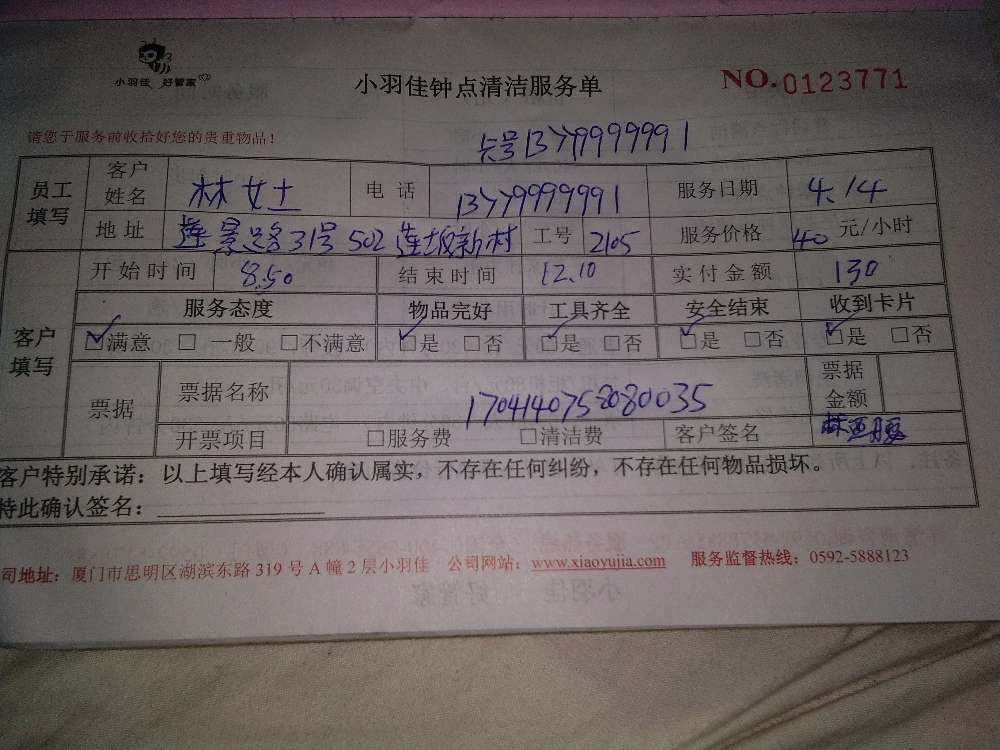 小羽佳 好管家
小羽佳钟点清洁服务单
NO.0123771
请您于服务前收拾好您的贵重物品!
卡号13779999991
员工填写 客户姓名 林女士 电话 13779999991 服务日期 4.14
地址 莲景路31号502莲坂新村 工号 2105 服务价格 40 元/小时
客户填写 开始时间 8.50 结束时间 12.10 实付金额 130
服务态度 物品完好 工具齐全 安全结束 收到卡片
☑满意 □一般 □不满意 ☑是 □否 ☑是 □否 ☑是 □否 ☑是 □否
票据 票据名称 1704140758080035 票据金额
开票项目 □服务费 □清洁费 客户签名
客户特别承诺:以上填写经本人确认属实,不存在任何纠纷,不存在任何物品损坏。
特此确认签名:
司地址:厦门市思明区湖滨东路319号A幢2层小羽佳 公司网站:www.xiaoyujia.com 服务监督热线:0592-5888123